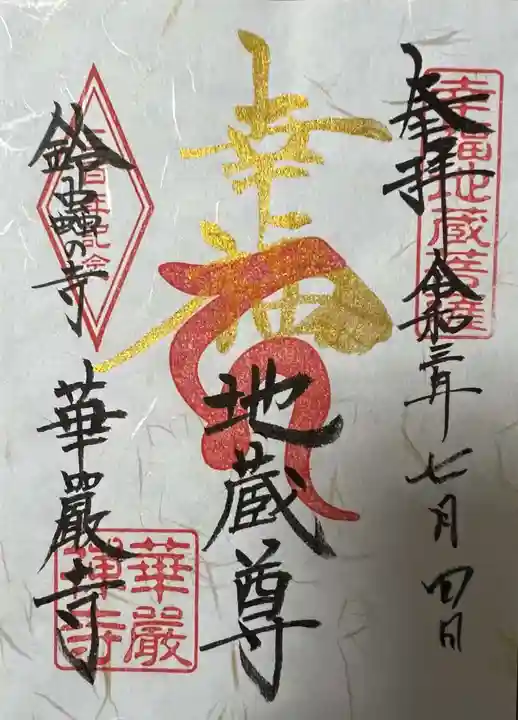 奉拝 令和三年七月四日
幸福地蔵菩薩
幸福
地蔵尊
鈴虫の寺 華厳寺
百年記念
華厳禅寺